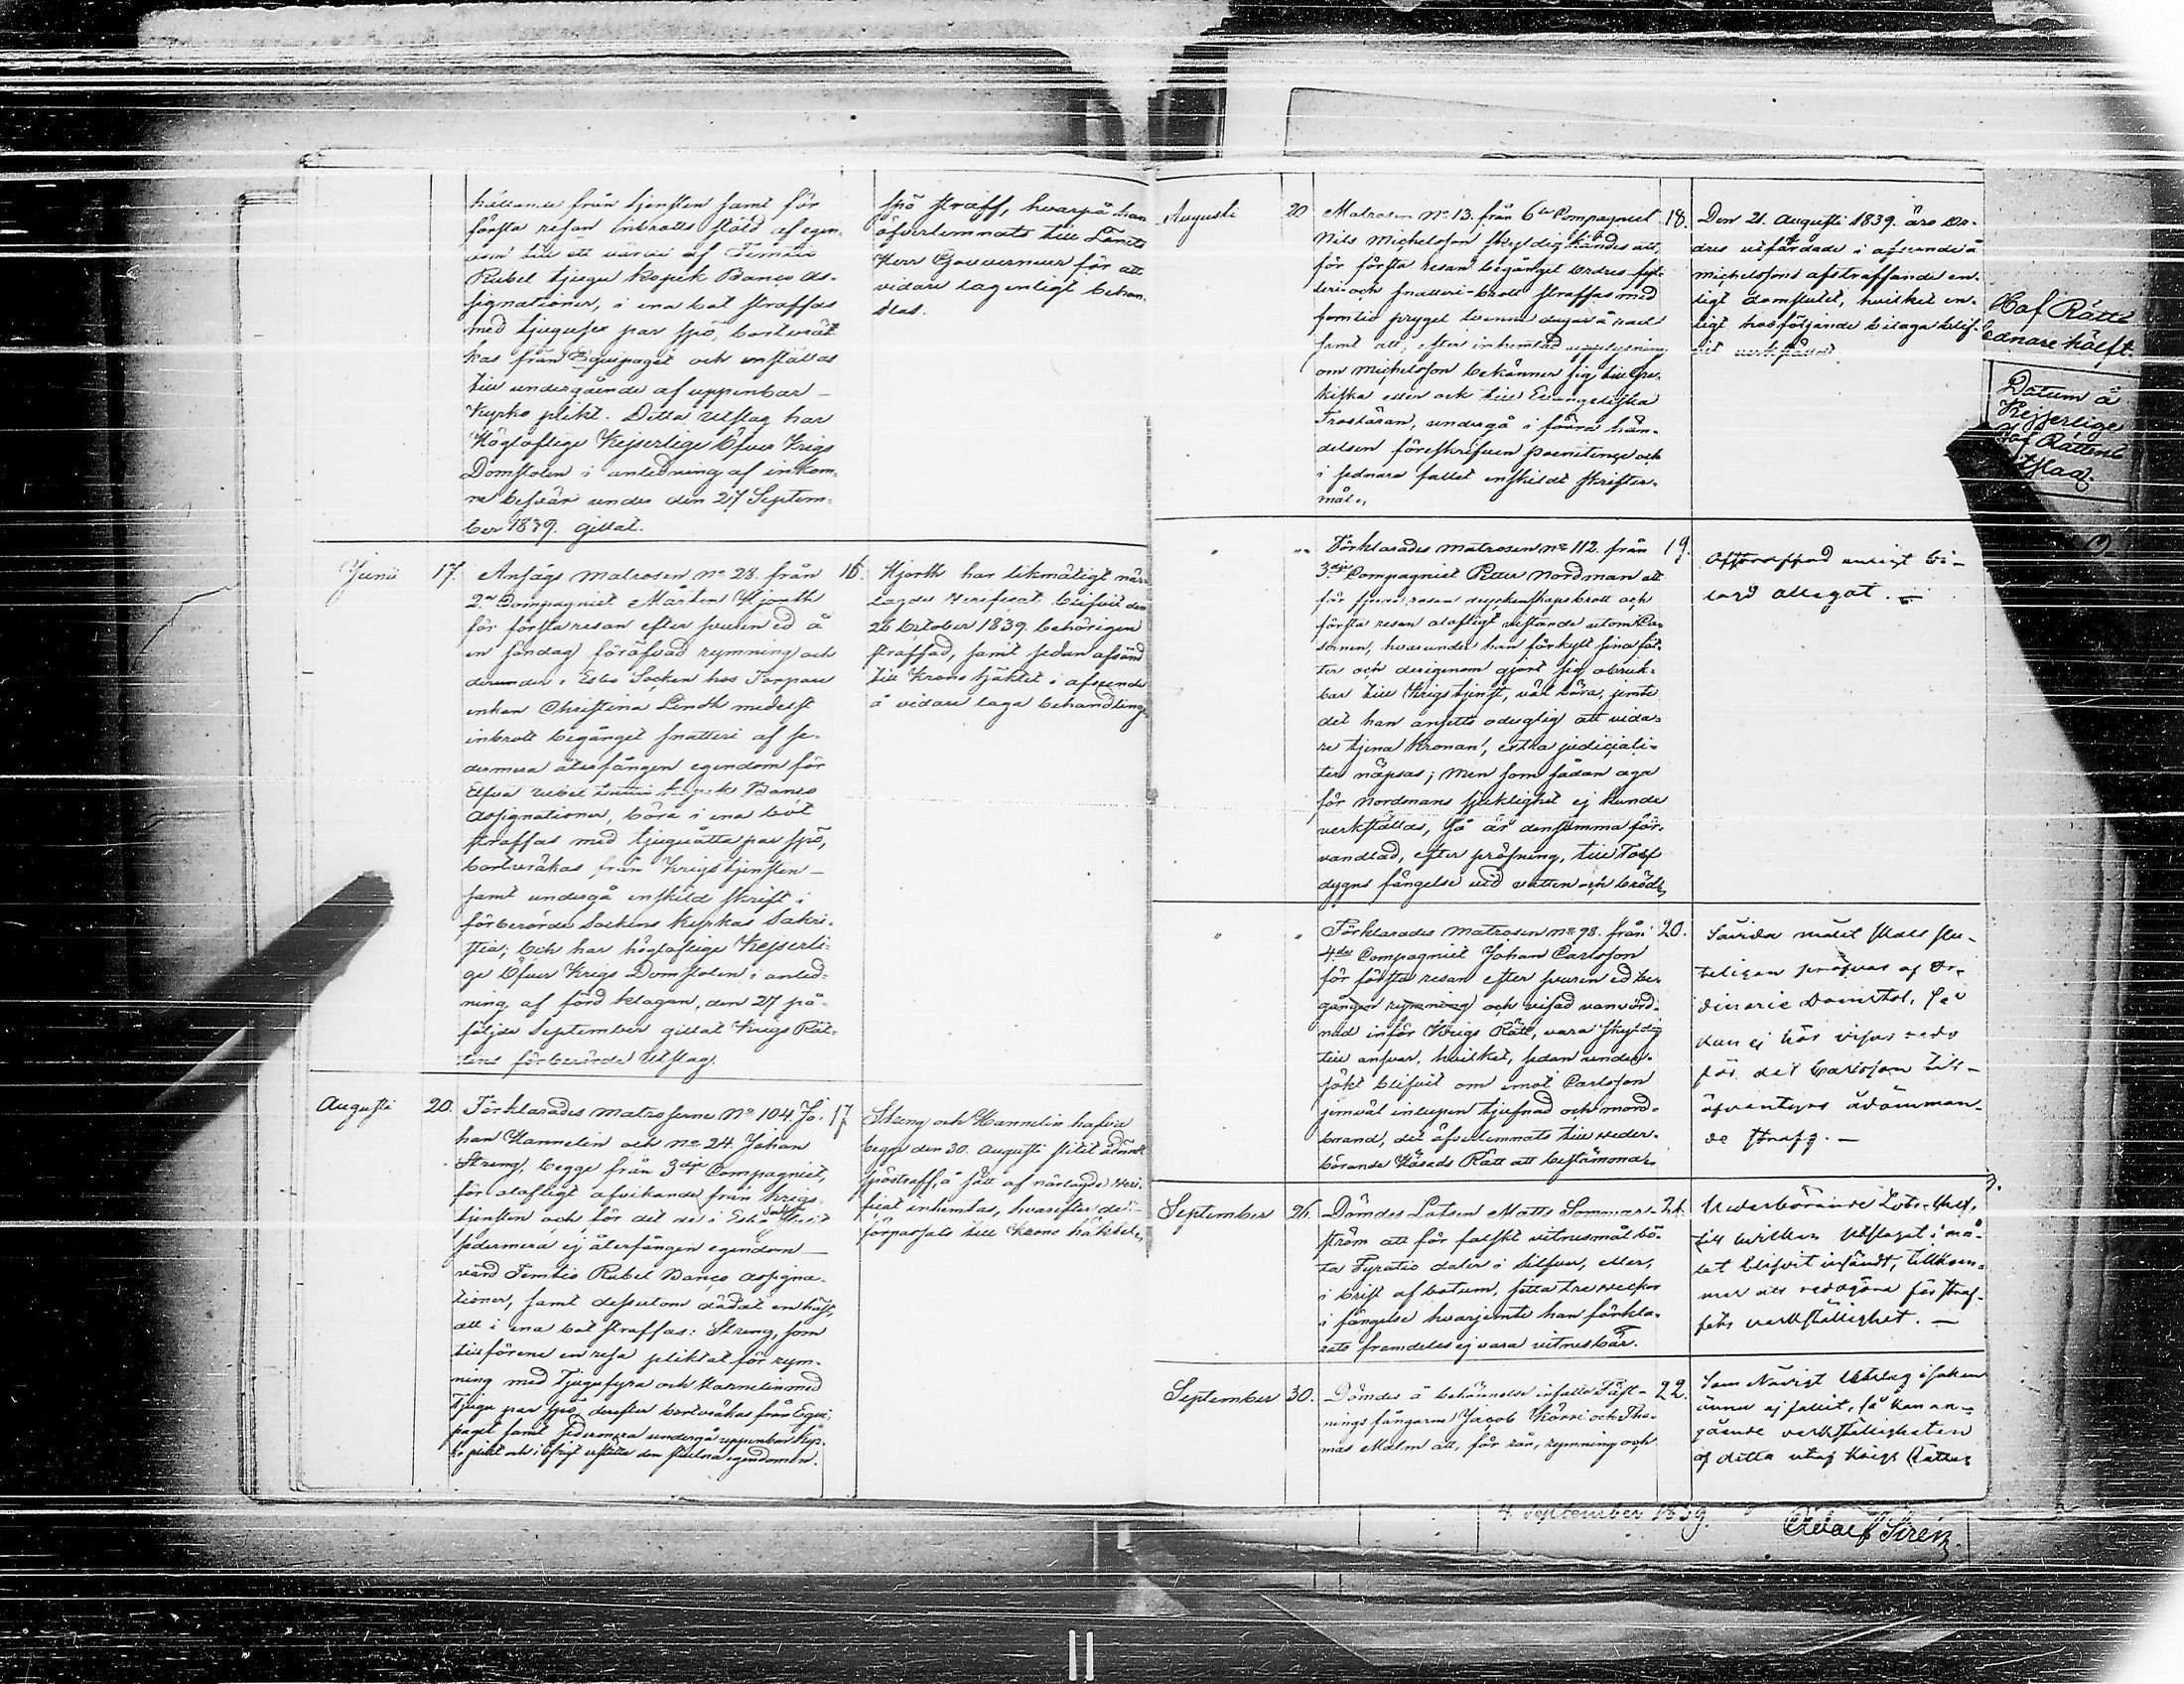 hållande från tjensten samt för
första resan inbrotts stöld af egen-
dom till ett värde af Femtio
Rubel tjugu kopek Banco As-
signationer, i ena bot straffas
med tjugusex par spö, bortvrä-
kas från Equipaget och inställas
till undergående af uppenbar
kyrko plikt. Detta utslag har
Högloflige Kejserlige Öfver Krigs
Domstolen i anledning af inkom-
ne besvär under den 27 Septem-
ber 1839. gillat.
spö straff, hvarpå han
öfverlemnats till Länets
Herr Gouverneur för att
vidare lagenligt behan-
dlas.
Junii 17. Ansågs Matrosen No 28. från 16.
2a Compagniet Mårten Hjorth
för första resan efter svuren ed å
en söndag föröfvad rymning och
derunder i Esbo Socken hos Torpare
enkan Christina Lindh medelst
inbrott begånget snatteri af se-
dermera återfången egendom för
Elfva rubel kopek Banco
Assignationer, böra i ena bot
straffas med tjuguåtta par spö,
bortvräkas från Krigstjensten
samt undergå enskild skrift i
förberörde Sockens kyrkas Sakri-
stia; Och har högloflige Kejserli-
ge Öfver Krigs Domstolen i anled-
ning af förd klagan, den 27 på-
följde September gillat Krigs Rät-
tens förberörde Utslag.
Hjorth har likmätigt när-
lagde Verificat blifvit den
26 October 1839. behörigen
straffad, samt sedan afsänd
till Krono häktet i afseende
å vidare laga behandling.
Augusti 20. Förklarades matroserne No 104. Jo- 17.
han Hannelin och No 24 Johan
Streng, begge från 3dje Compagniet,
för olofligt afvikande från krigs
tjensten och för det de i Esbo Socken
sedermera ej återfången egendom
värd Femtio Rubel Banco Assigna-
tioner, samt dessutom dödat en häst,
att i ena bot straffas: Streng, som
tillförene en resa pliktat för rym-
ning med Tjugufyra och Hannelin med
Tjugu par spö, derefter bortvräkas från Equi-
paget samt sedermera undergå uppenbar kyr-
ko plikt och i öfrigt ersätta den stulna egendomen.
Streng och Hannelin hafva
begge den 30. Augusti slitit ådömdt
spöstraff, å sätt af närlagde veri-
ficat inhemtas, hvarefter de
förpassats till Krono häktet.
Augusti 20 Matrosen No 13. från 6te Compagniet 18.
Nils Michelsson skyldig kändes att,
för första resan begånget ordres-fyl-
leri och snatteri-brott straffas med
femtio prygel tvenne dagar å rad
samt att, efter inhemtad upplysning
om Michelsson bekänner sig till Gre-
kiska eller ock till Evangeliska
Trosläran, undergå i förra hän-
delsen föreskrifven poenitence och
i sednare fallet enskildt skrifter-
mål.
Den 21. Augusti 1839. äro Or-
dres utfärdade i afseende å
Michelssons afstraffande en-
ligt domslutet, hvilket en-
ligt hosföljande bilaga blif-
vit verkstäldt.
" " Förklarades Matrosen No 112. från 19.
3dje Compagniet Petter Nordman att
för resan fylleribrott och
första resan olofligt vistande utom Ca-
sernen, hvarunder han förkylt sina föt-
ter och derigenom gjort sig obruk-
bar till Krigstjenst, väl böra, jemte
det han ansetts oduglig att vida-
re tjena Kronan, extra judiciali-
ter näpsas; Men som sådan aga
för Nordmans sjuklighet ej kunde
verkställas, Så är densamma för-
vandlad, efter pröfning, till Tolf
dygns fängelse vid vatten och bröd.
Afstraffad enligt bi-
lagd allegat.
" " Förklarades Matrosen No 98. från 20.
4de Compagniet Johan Carlsson
för första resan efter svuren ed be-
gången rymning och visad vanvörd-
nad inför Krigs Rätt, vara skyldig
till ansvar, hvilket, sedan under-
sökt blifvit om emot Carlsson
jemväl inlupen tjufnad och mord-
brand, det öfverlemnats till veder-
börande Härads Rätt att bestämma.
Såvida målet skall slu-
teligen pröfvas af Or-
dinarie Domstol, så
kan ej här visas redo
för det Carlsson till-
äfventyrs ådömman-
de straff.
September 26. Dömdes Lotsen Matts Sommar- 21.
ström att för falskt vitnesmål bö-
ta Fyratio daler i Silfver, eller,
i brist af botum, sitta tre veckor
i fängelse hvarjemte han förkla-
rats framdeles ej vara vitnesbär.
Vederbörande Lots-Chef,
till hvilken Utslaget i må-
let blifvit insändt, tillkom-
mer att redogöra för straf-
fets verkställighet.
September 30. Dömdes å bekännelse infalle Fäst- 22.
ningsfångarne Jacob Körri och Tho-
mas Malm att, för rån, rymning och
Som Nådigt Utslag i saken
ännu ej fallit, så kan an-
gående verkställigheten
af detta utaf Krigs Rätten
Hof Rätte
ednare hälft
Datum å
Kejserlige
Hof Rättens
Utslag.
4 September 1839.